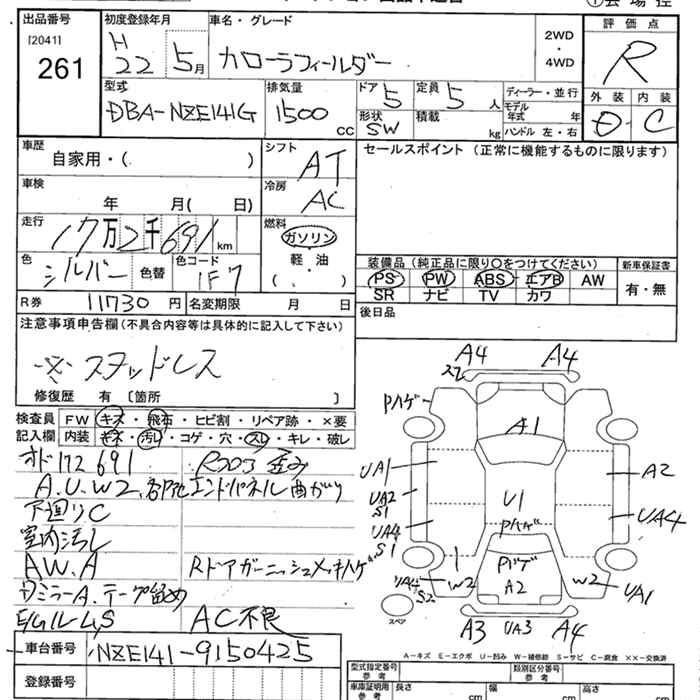 出品番号
[2041]
261
初度登録年月
H
22 5月
車名・グレード
カローラフィールダー
2WD
・
4WD
評価点
R
外装 内装
D C
型式
DBA-NZE141G
排気量
1500 CC
ドア 5
形状 SW
定員 5 人
積載 kg
ディーラー・並行
モデル年式 年
ハンドル 左・右
車歴
自家用・( )
シフト
AT
セールスポイント (正常に機能するものに限ります)
車検
年 月( 日)
冷房
AC
走行
17万2千691 km
燃料
ガソリン
軽・油
( . )
色
シルバー
色替
色コード
1F7
装備品 (純正品に限り○をつけてください)
PS PW ABS エアB AW
SR ナビ TV カワ
新車保証書
有・無
R券 11730 円
名変期限 月 日
後日品
注意事項申告欄 (不具合内容等は具体的に記入して下さい)
※スタッドレス
修復歴 有 〔箇所 〕
検査員 FW キズ・飛石・ヒビ割・リペア跡・×要
記入欄 内装 キズ・汚レ・コゲ・穴・スレ・キレ・破レ
オド172691
A.U.W2.各部他 エンドパネル曲がり
下廻りC
室内汚レ
AW.A Rドアガーニッシュメッキハゲ
Dミラー A.テープ留め
AC不良
車台番号 NZE141-9150425
登録番号
A4 A4
Pハゲ
A1
UA1
UA2
S1
UA4
S1
U1
Pハゲ
A2
UA4
Pハゲ
A2
W2
W2
UA4
S2
UA1
スペア
A3 UA3 A4
A－キズ E－エクボ U－凹み W－補修跡 S－サビ C－腐食 ××－交換済
型式指定番号
参考
類別区分番号
参考
車庫証明用
参考
長さ cm
幅 cm
高さ cm